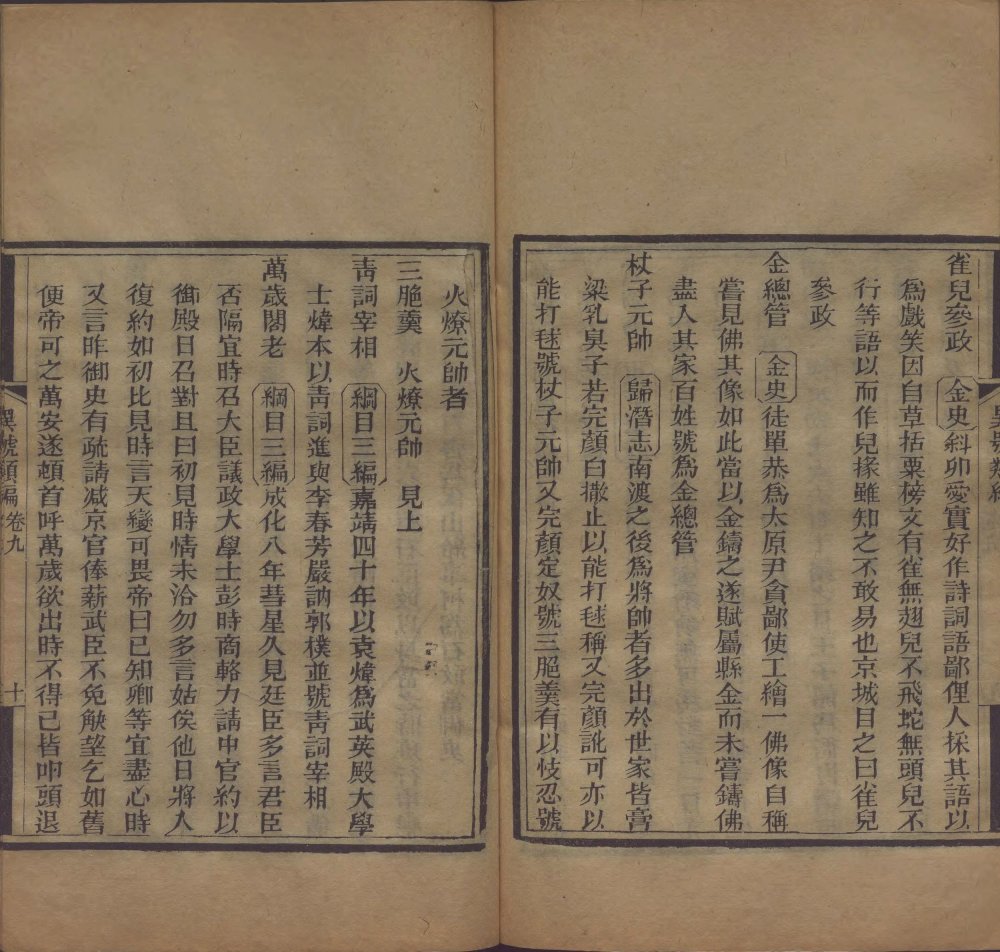 雀兒參政　金史斜卯愛實好作詩詞語鄙俚人採其語以
爲戲笑因自草括粟榜文有雀無翅兒不飛蛇無頭兒不
行等語以而作兒掾雖知之不敢易也京城目之曰雀兒
參政
金總管　金史徒單恭爲太原尹貪鄙使工繪一佛像自稱
嘗見佛其像如此當以金鑄之遂賦屬縣金而未嘗鑄佛
盡入其家百姓號爲金總管
杖子元帥　歸潛志南渡之後爲將帥者多出於世家皆膏
粱乳臭子若完顏白撒止以能打毬稱又完顏訛可亦以
能打毬號杖子元帥又完顏定奴號三脃羹有以忮忍號
火燎元帥者
三脃羹　火燎元帥　見上
靑詞宰相　綱目三編嘉靖四十年以袁煒爲武英殿大學
士煒本以靑詞進與李春芳嚴訥郭樸並號靑詞宰相
萬歲閣老　綱目三編成化八年彗星久見廷臣多言君臣
否隔宜時召大臣議政大學士彭時商輅力請中官約以
御殿日召對且曰初見時情未洽勿多言姑俟他日將入
復約如初比見時言天變可畏帝曰已知卿等宜盡心時
又言昨御史有疏請減京官俸薪武臣不免觖望乞如舊
便帝可之萬安遂頓首呼萬歲欲出時不得已皆叩頭退
異號類編　卷九　十